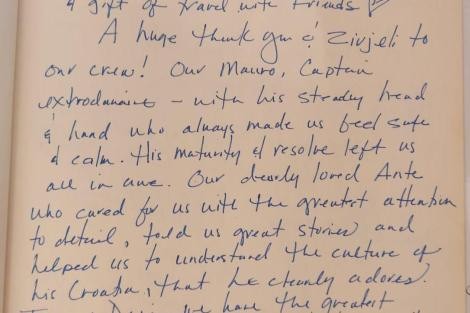 & gift of travel with friends
A huge thank you & Zivjeli to
our crew! Our Mauro, Captain
extrodanaire - with his steady head
& hand who always made us feel safe
& calm. His maturity & resolve left us
all in awe. Our dearly loved Ante
who cared for us with the greatest attention
to detail, told us great stories and
helped us to understand the culture of
his Croatia, that he clearly adores.
we have the greatest